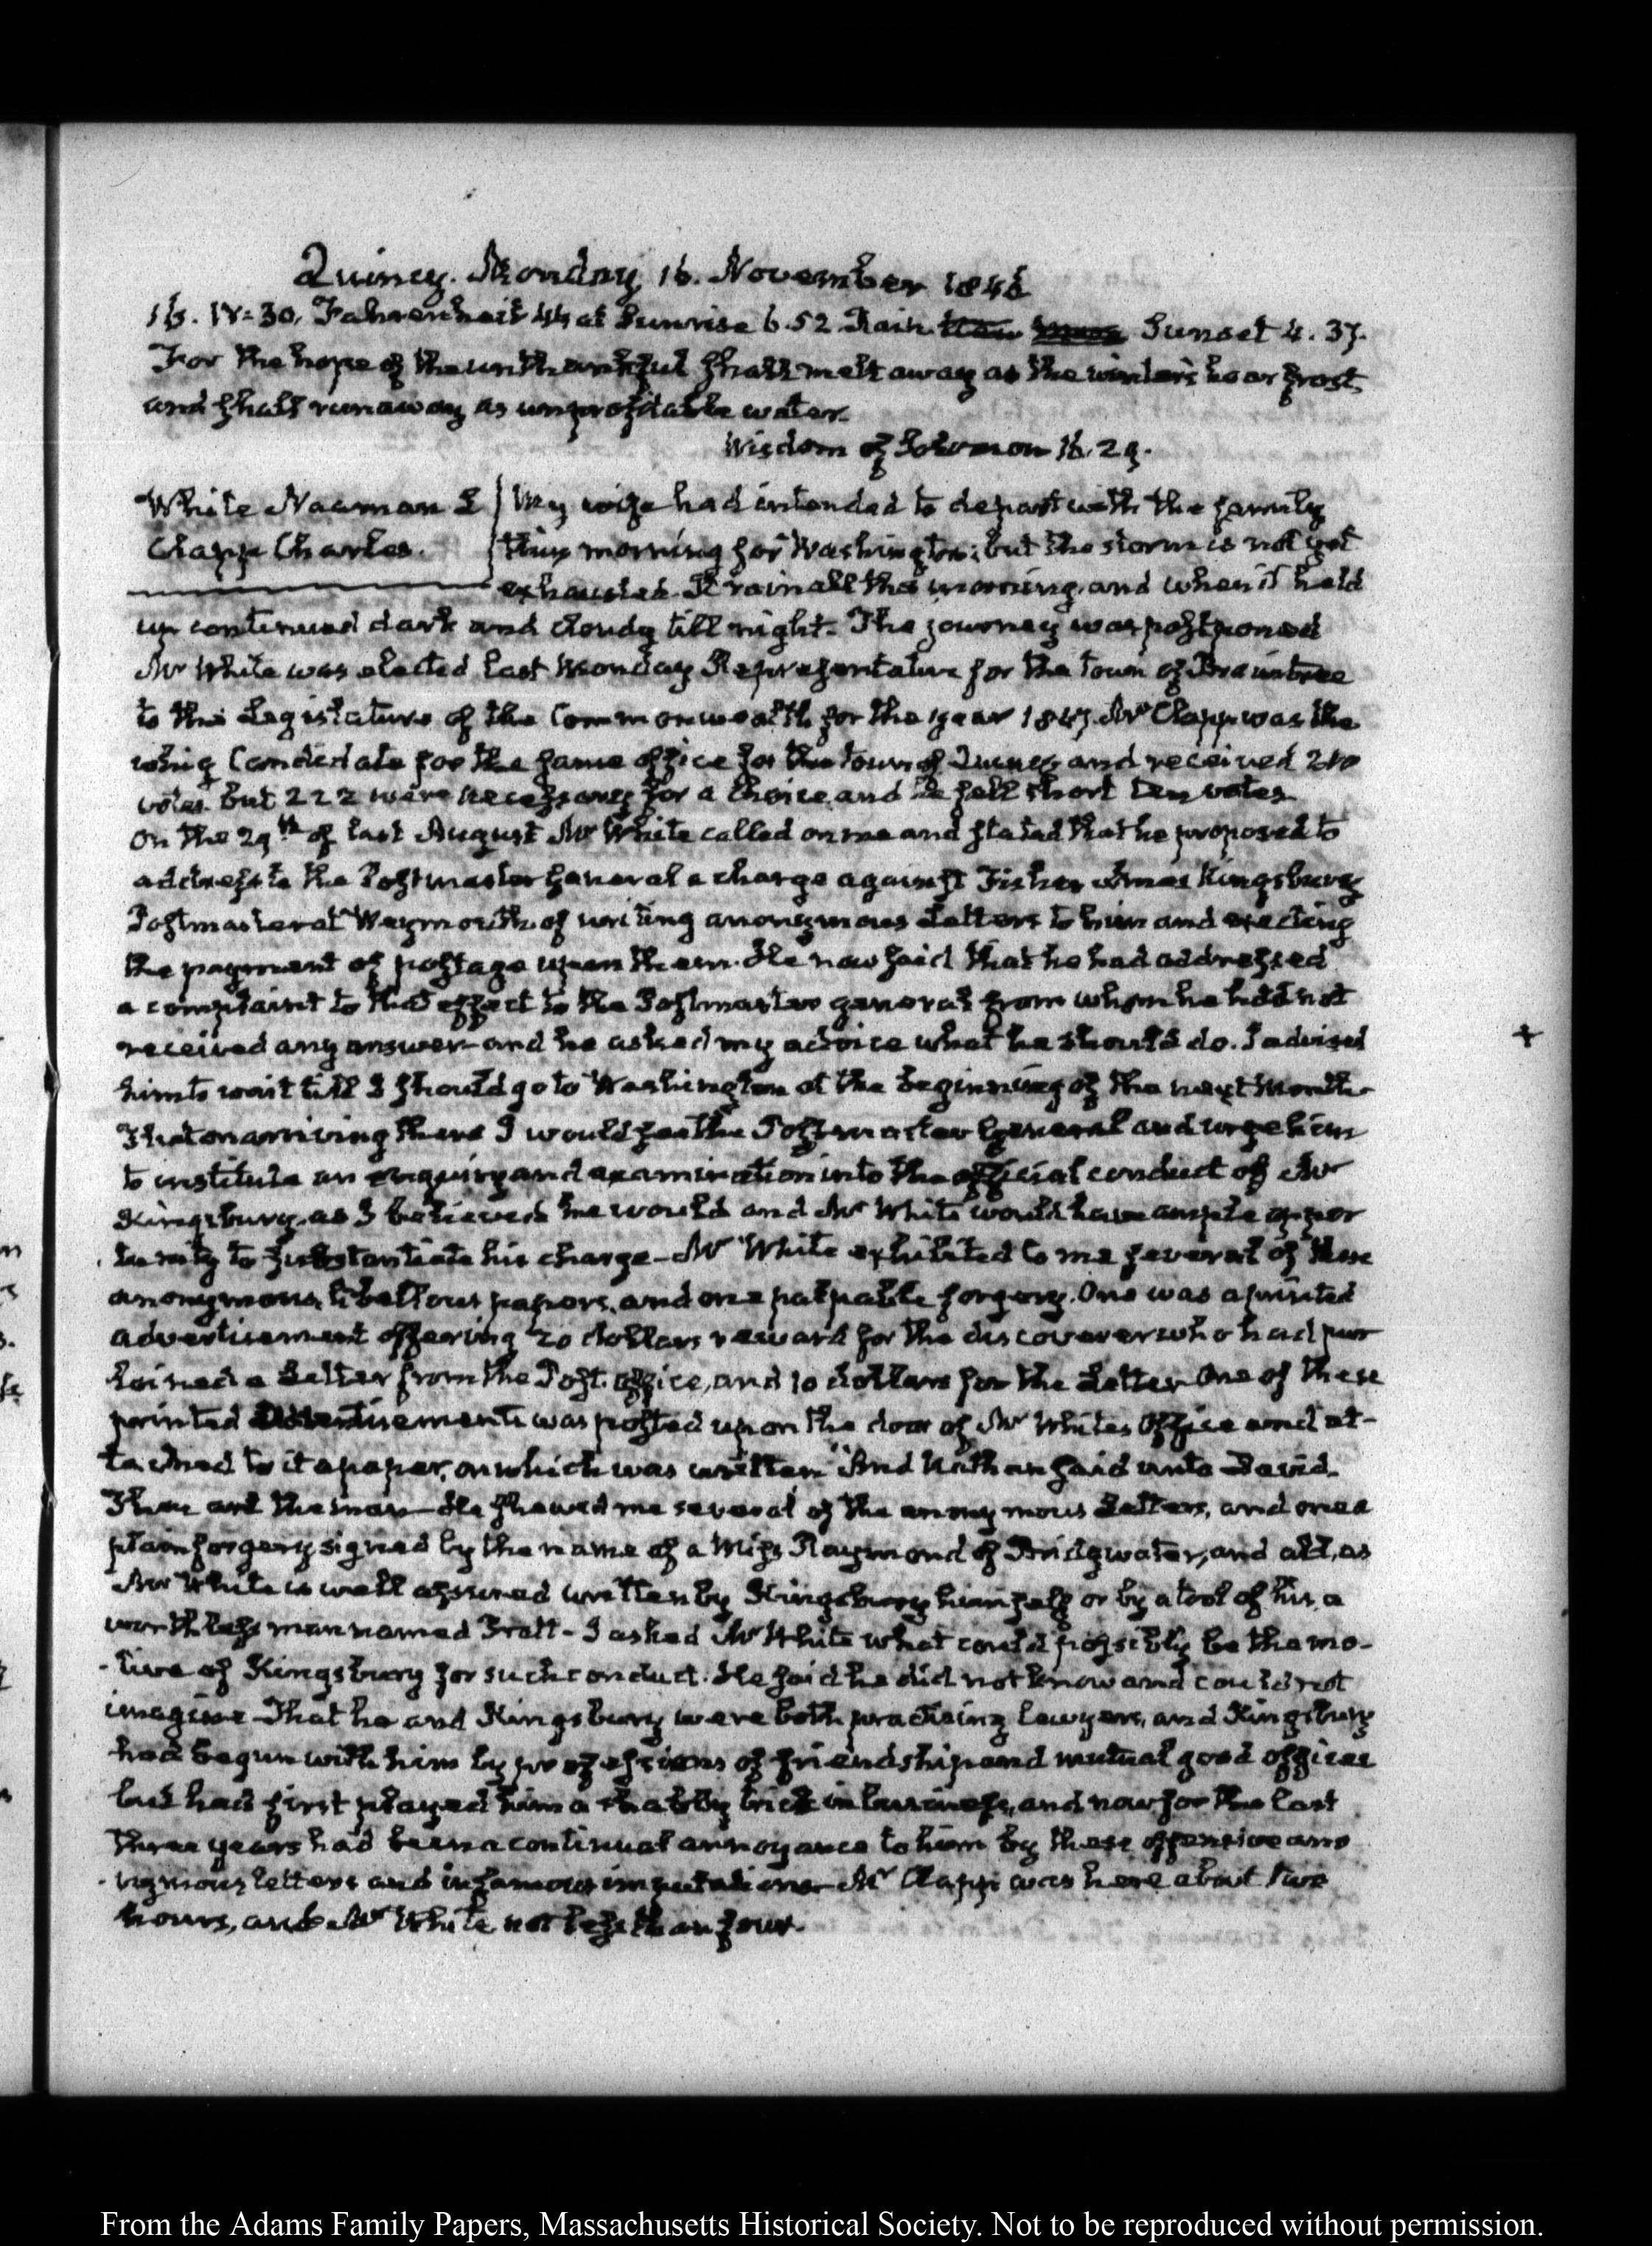 Quincy. Monday 16. November 1846
16. IV:30. Fahrenheit 44 at Sunrise 6.52. Rain. Sunset 4.37.
For the hope of the unthankful shall melt away as the winter's hoar frost,
and shall run away as unprofitable water.
Wisdom of Solomon 16.29.
White Naaman L
Clapp Charles.
My wife had intended to depart with the family
this morning for Washington; but the storm is not yet
exhausted. It rain all this morning, and when it held
up continued dark and cloudy till night. The journey was postponed
Mr White was elected last Monday Representative for the town of Braintree
to the Legislature of the Commonwealth for the year 1847. Mr Clapp was the
whig Candidate for the same office for the town of Quincy and received 210
votes. but 222 were necessary for a choice, and he fell short ten votes.
On the 29th of last August Mr White called on me and stated that he proposed to
address to the Postmaster General a charge against Fisher Ames Kingsbury
Postmaster at Weymouth of writing anonymous Letters to him and exacting
the payment of postage upon them. He now said that he had addressed
a complaint to that effect to the Postmaster general from whom he had not
received any answer and he asked my advice what he should do. I advised
him to wait till I should go to Washington at the beginning of the next Month
That on arriving there I would see the Postmaster General and urge him
to institute an enquiry and examination into the official conduct of Mr
Kingsbury. as I believed he would and Mr White would have ample oppor
tunity to substantiate his charge - Mr White exhibited to me several of these
anonymous, libellous papers, and one palpable forgery. One was a printed
advertisement offering 20 dollars reward for the discoverer who had pur
loined a Letter from the Post office, and 10 dollars for the Letter One of these
printed Advertisements was posted upon the door of Mr Whites Office and at-
tached to it a paper, on which was written "And Nathan said unto David.
Thou art the man - He shewed me several of the anonymous Letters, and one a
plain forgery signed by the name of a Miss Raymond of Bridgwater, and all, as
Mr White is well assured written by Kingsbury himself or by a tool of his, a
worthless man named Pratt - I asked Mr White what could possibly be the mo-
-tive of Kingsbury for such conduct. He said he did not know and could not
imagine - That he and Kingsbury were both practising lawyers, and Kingsbury
had begun with him by professions of friendship and mutual good offices
but had first played him a shabby trick in business, and now for the last
three years had been a continual annoyance to him by these offensive ano
-nymous letters and infamous imputations - Mr Clapp was here about two
hours, and Mr White not less than four.
+
From the Adams Family Papers, Massachusetts Historical Society. Not to be reproduced without permission.